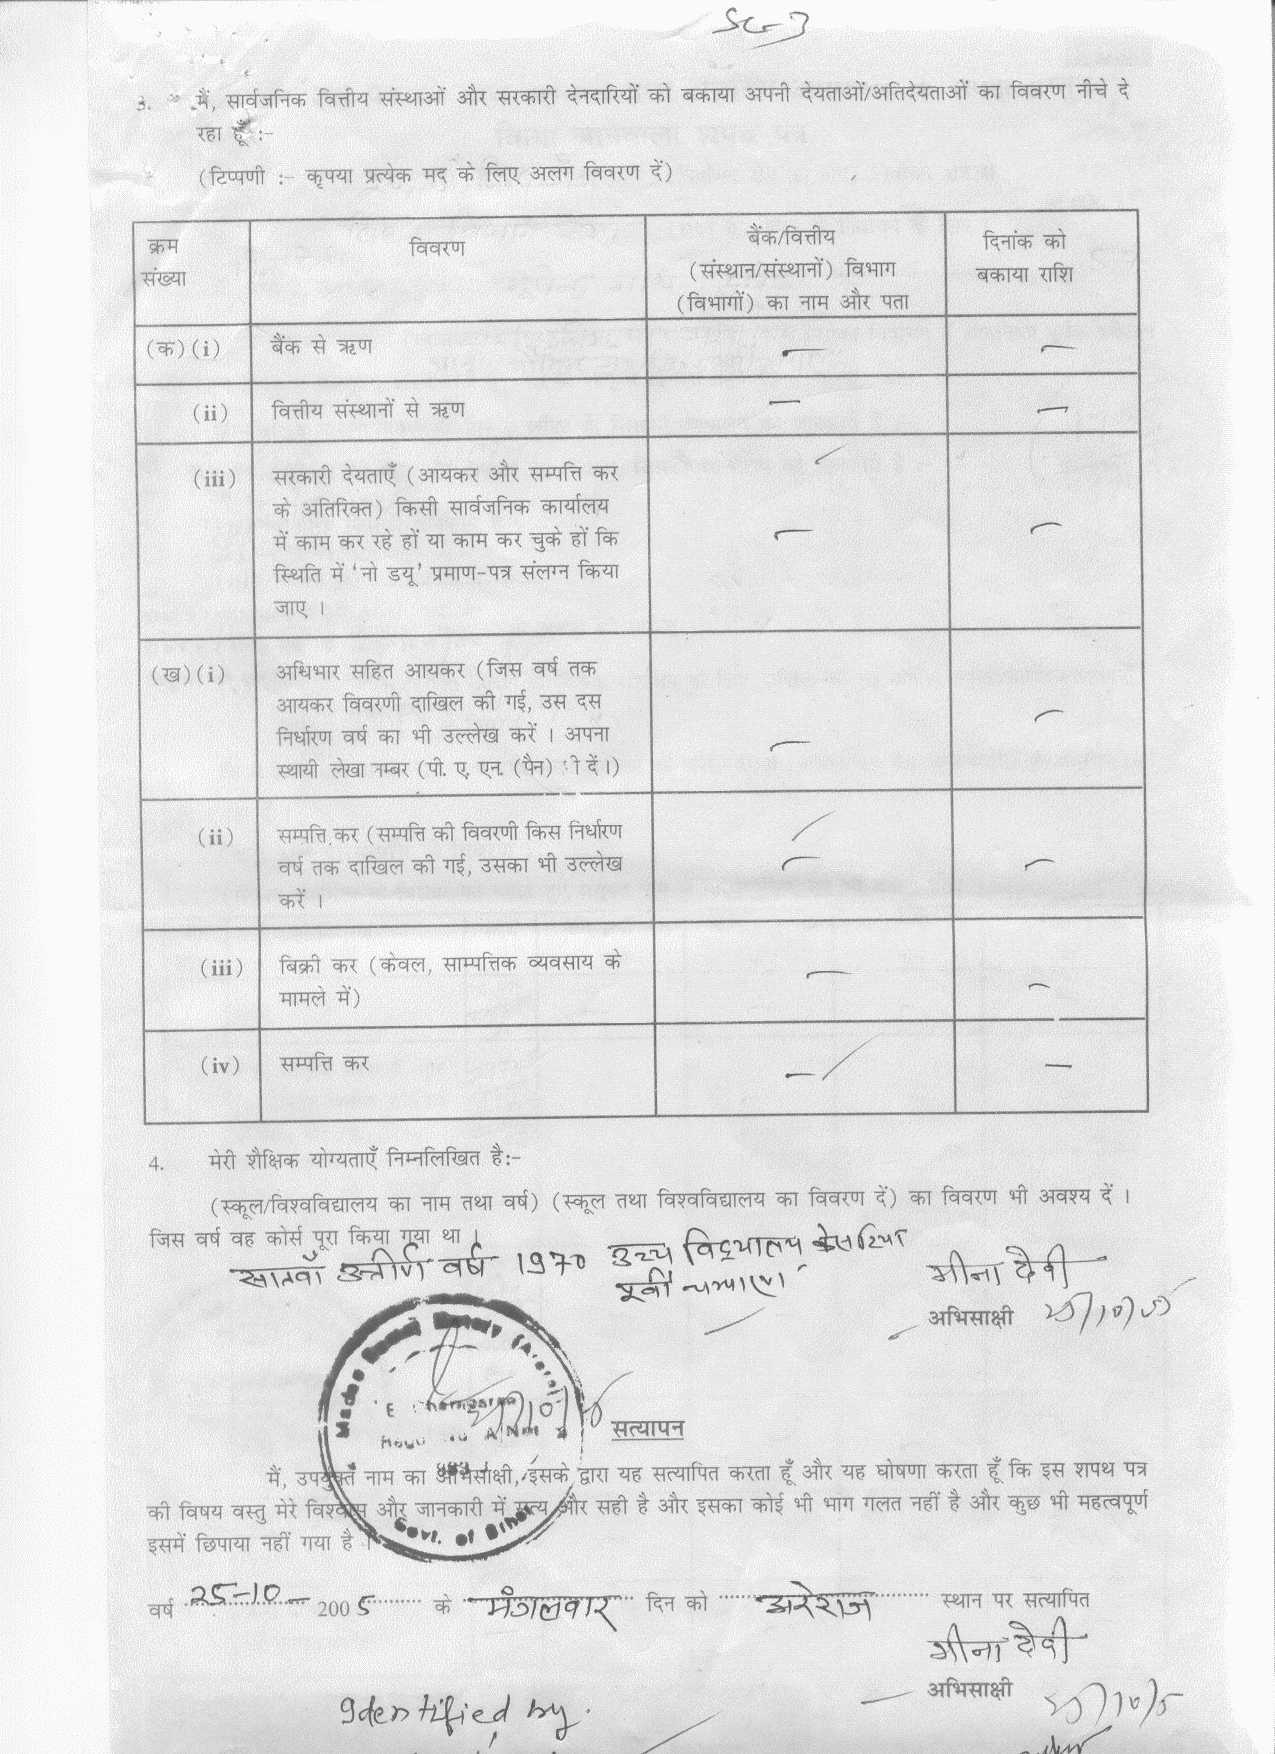 3. मैं, सार्वजनिक वित्तीय संस्थाओं और सरकारी देनदारियों को बकाया अपनी देयताओं/अतिदेयताओं का विवरण नीचे दे
रहा हूँ :-
(टिप्पणी :- कृपया प्रत्येक मद के लिए अलग विवरण दें)
क्रम संख्या विवरण बैंक/वित्तीय (संस्थान/संस्थानों) विभाग (विभागों) का नाम और पता दिनांक को बकाया राशि
(क)(i) बैंक से ऋण — —
(ii) वित्तीय संस्थानों से ऋण — —
(iii) सरकारी देयताएँ (आयकर और सम्पत्ति कर
के अतिरिक्त) किसी सार्वजनिक कार्यालय
में काम कर रहे हों या काम कर चुके हों कि — —
स्थिति में 'नो डयू' प्रमाण-पत्र संलग्न किया
जाए ।
(ख)(i) अधिभार सहित आयकर (जिस वर्ष तक
आयकर विवरणी दाखिल की गई, उस दस
निर्धारण वर्ष का भी उल्लेख करें । अपना — —
स्थायी लेखा नम्बर (पी. ए. एन. (पैन) भी दें।)
(ii) सम्पत्ति कर (सम्पत्ति की विवरणी किस निर्धारण
वर्ष तक दाखिल की गई, उसका भी उल्लेख — —
करें ।
(iii) बिक्री कर (केवल, साम्पत्तिक व्यवसाय के — —
मामले में)
(iv) सम्पत्ति कर — —
4. मेरी शैक्षिक योग्यताएँ निम्नलिखित है:-
(स्कूल/विश्वविद्यालय का नाम तथा वर्ष) (स्कूल तथा विश्वविद्यालय का विवरण दें) का विवरण भी अवश्य दें ।
जिस वर्ष वह कोर्स पूरा किया गया था ।
सातवाँ उत्तीर्ण वर्ष 1970 उच्च विद्यालय केसरिया
पूर्वी चम्पारण
मीना देवी
अभिसाक्षी 25/10/05
Govt. of Bihar
सत्यापन
मैं, उपर्युक्त नाम का अभिसाक्षी, इसके द्वारा यह सत्यापित करता हूँ और यह घोषणा करता हूँ कि इस शपथ पत्र
की विषय वस्तु मेरे विश्वास और जानकारी में सत्य और सही है और इसका कोई भी भाग गलत नहीं है और कुछ भी महत्वपूर्ण
इसमें छिपाया नहीं गया है ।
वर्ष 25-10- 2005 के मंगलवार दिन को अरेराज स्थान पर सत्यापित
मीना देवी
अभिसाक्षी 25/10/5
Identified by.